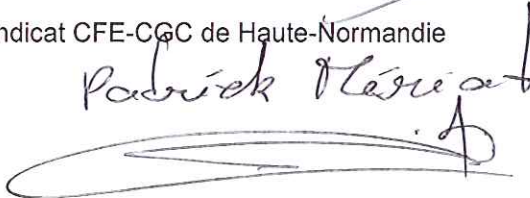 ndicat CFE-CGC de Haute-Normandie
Patrick Mériat